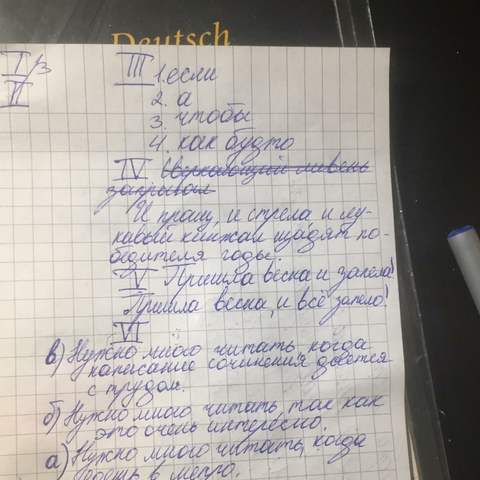 Deutsch
I /3
II
III 1. если
2. а
3. чтобы
4. как будто
IV Сверкающий ливень
закрывал
И пращу, и стрела, и лу-
кавый кинжал щадят по-
бедителя годы.
V Пришла весна и запела!
Пришла весна, и всё запело!
VI
в) Нужно много читать, когда
написание сочинения дается
с трудом.
б) Нужно много читать, так как
это очень интересно.
а) Нужно много читать, когда
едешь в метро.